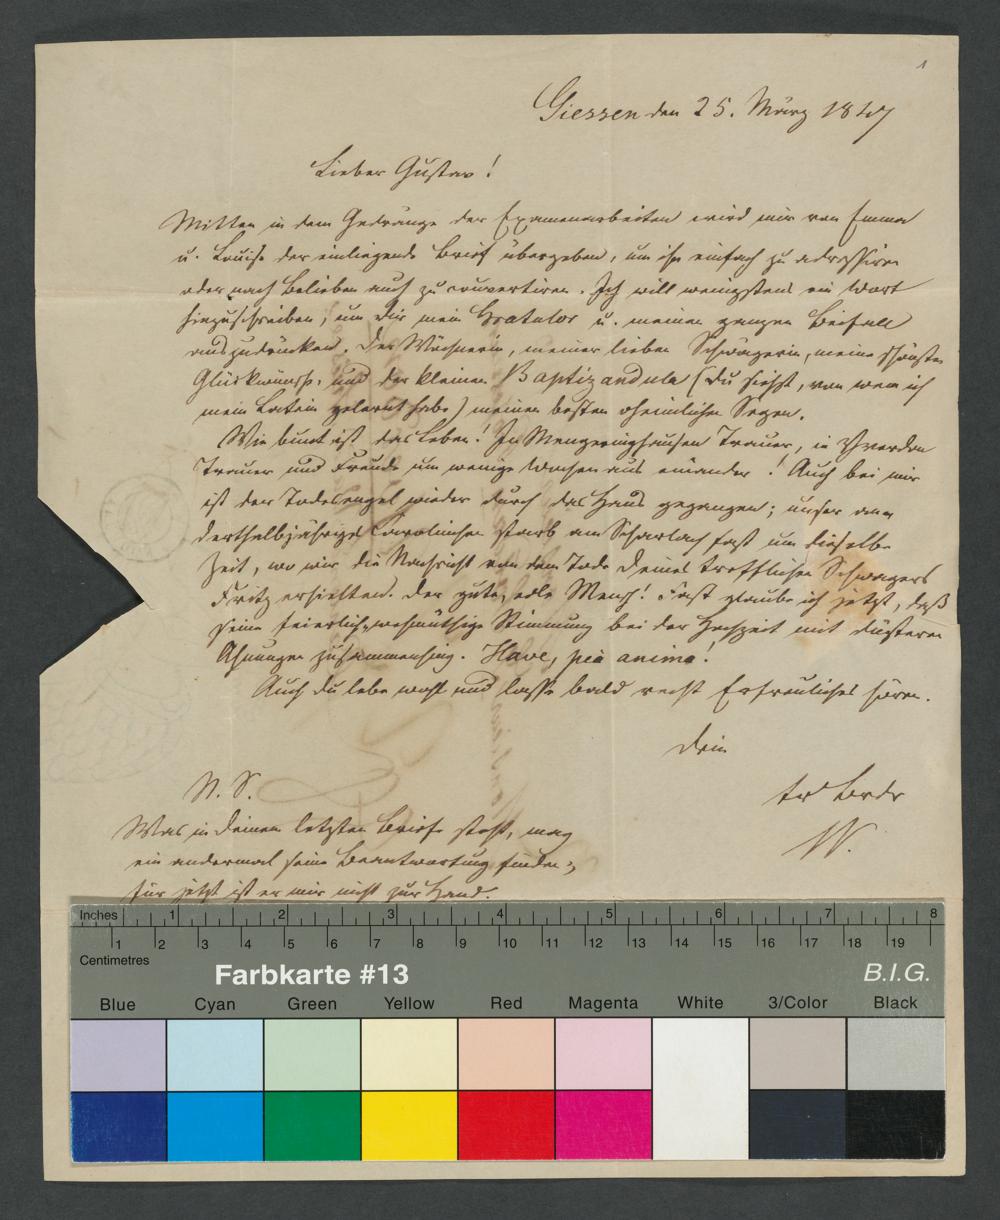 1
Giessen den 25. März 1847
Lieber Gustav!
Mitten in dem Gedränge der Examenarbeiten wird mir von Emma
u. Louise der einliegende Brief übergeben, um ihn einfach zu adressiren
oder nach Belieben auch zu couvertiren. Ich will wenigstens ein Wort
hinzuschreiben, um dir mein Gratulor u. meinen ganzen Beifall
auszudrücken. Der Wöchnerin, meiner lieben Schwägerin, meine schönsten
Glückwünsche und der kleinen Baptizandula (du siehst, von wem ich
mein Latein gelernt habe) meinen besten oheimlichen Segen.
Wie bunt ist das Leben! In Mengeringhausen Trauer, in Yverdon
Trauer und Freude um wenige Wochen aus einander! Auch bei mir
ist der Todesengel wieder durch das Haus gegangen; unser an
derthalbjähriges Carolinchen starb am Scharlach fast um dieselbe
Zeit, wo wir die Nachricht von dem Tode deines trefflichen Schwagers
Fritz erhielten. Der gute, edle Mensch! Fast glaube ich jetzt, daß
seine feierlich-wehmüthige Stimmung bei der Hochzeit mit düsteren
Ahnungen zusammenhing. Have, pia anima!
Auch du lebe wohl und lasse bald recht Erfreuliches hören.
Dein
tr. Bruder
W.
N. S.
Was in deinem letzten Briefe steht, mag
ein andermal seine Beantwortung finden;
für jetzt ist er mir nicht zur Hand.
Inches 1 2 3 4 5 6 7 8
1 2 3 4 5 6 7 8 9 10 11 12 13 14 15 16 17 18 19
Centimetres
Farbkarte #13 B.I.G.
Blue Cyan Green Yellow Red Magenta White 3/Color Black